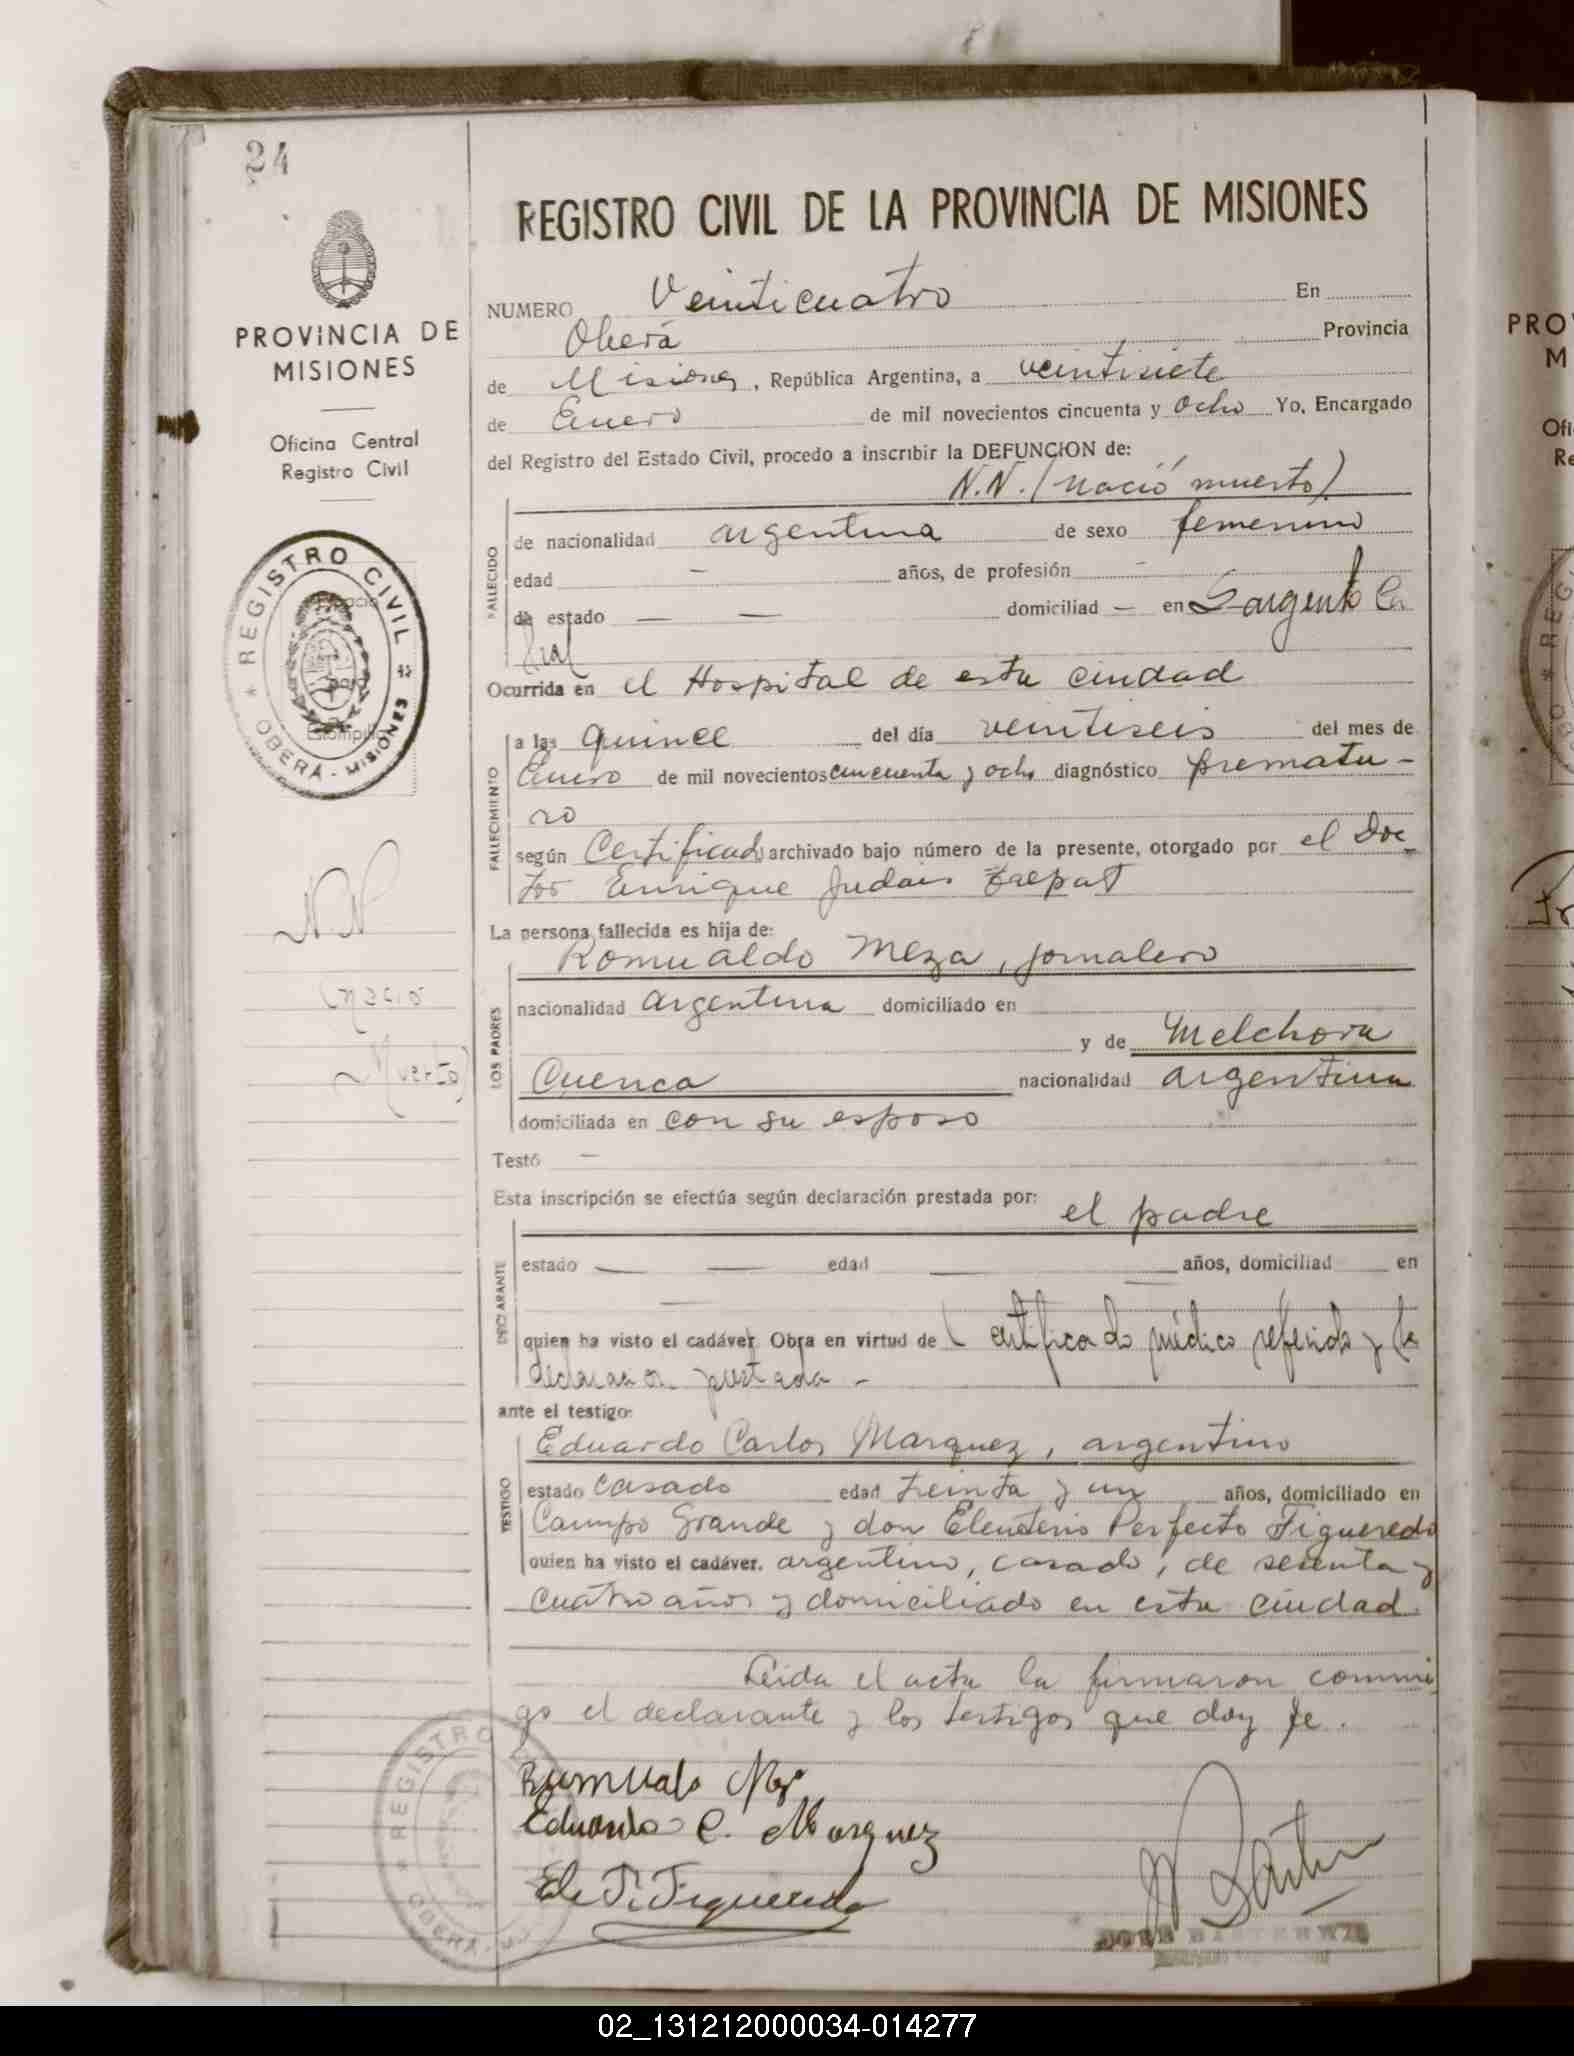 24
PROVINCIA DE
MISIONES
Oficina Central
Registro Civil
REGISTRO CIVIL
OBERÁ - MISIONES
N N
(nació
Muerto)
REGISTRO CIVIL DE LA PROVINCIA DE MISIONES
NUMERO Veinticuatro En
Oberá Provincia
de Misiones, República Argentina, a veintisiete
de Enero de mil novecientos cincuenta y ocho Yo, Encargado
del Registro del Estado Civil, procedo a inscribir la DEFUNCION de:
N.N. (nació muerto)
FALLECIDO
de nacionalidad argentina de sexo femenino
edad — años, de profesión —
de estado — — domiciliad — en Sargento Ca
bral
Ocurrida en el Hospital de esta ciudad
FALLECIMIENTO
a las quince del día veintiseis del mes de
Enero de mil novecientos cincuenta y ocho diagnóstico prematu-
ro
según Certificado archivado bajo número de la presente, otorgado por el Doc-
tor Enrique
La persona fallecida es hija de:
LOS PADRES
Romualdo Meza, jornalero
nacionalidad argentina domiciliado en
y de Melchora
Cuenca nacionalidad argentina
domiciliada en con su esposo
Testó —
Esta inscripción se efectúa según declaración prestada por:
el padre
DECLARANTE
estado — — edad — años, domiciliad — en
—
quien ha visto el cadáver. Obra en virtud de certificado médico referido y la
declaración prestada -
ante el testigo:
TESTIGO
Eduardo Carlos Marquez, argentino
estado casado edad treinta y un años, domiciliado en
Campo Grande y don Eleuterio Perfecto Figueredo
quien ha visto el cadáver. argentino, casado, de sesenta y
cuatro años y domiciliado en esta ciudad.
Leida el acta la firmaron conmi
go el declarante y los testigos que doy fe.
Eduardo C. Marquez
Figueredo
REGISTRO
OBERÁ
PRO
M
Ofi
Re
02_131212000034-014277